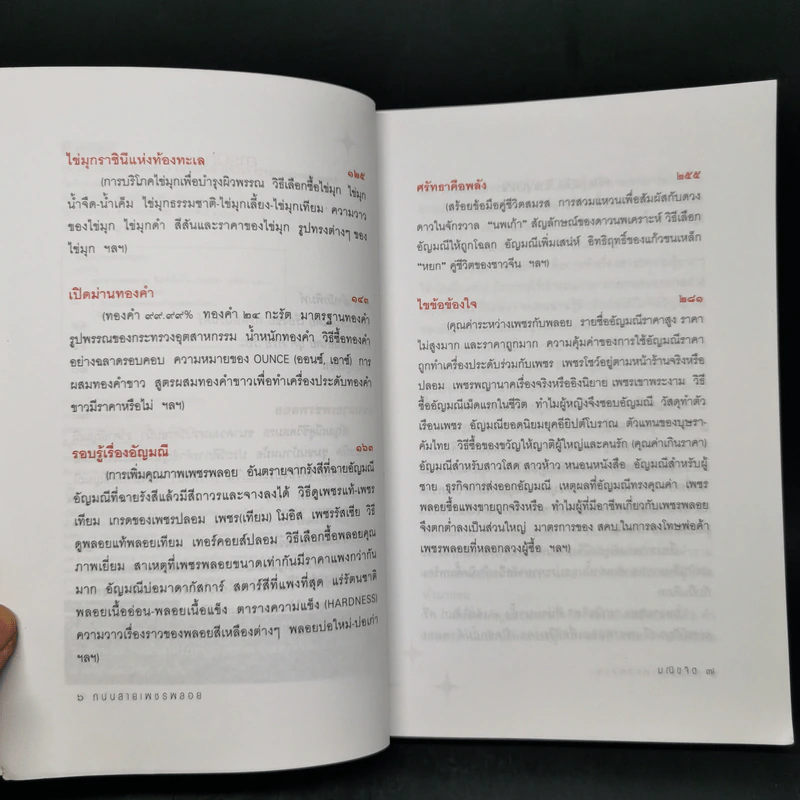 ไข่มุกราชินีแห่งท้องทะเล ๑๒๕
(การบริโภคไข่มุกเพื่อบำรุงผิวพรรณ วิธีเลือกซื้อไข่มุก ไข่มุก
น้ำจืด-น้ำเค็ม ไข่มุกธรรมชาติ-ไข่มุกเลี้ยง-ไข่มุกเทียม ความวาว
ของไข่มุก ไข่มุกดำ สีสันและราคาของไข่มุก รูปทรงต่างๆ ของ
ไข่มุก ฯลฯ)
เปิดม่านทองคำ ๑๔๓
(ทองคำ ๙๙.๙๙% ทองคำ ๒๔ กะรัต มาตรฐานทองคำ
รูปพรรณของกระทรวงอุตสาหกรรม น้ำหนักทองคำ วิธีซื้อทองคำ
อย่างฉลาดรอบคอบ ความหมายของ OUNCE (ออนซ์, เอาซ์) การ
ผสมทองคำขาว สูตรผสมทองคำขาวเพื่อทำเครื่องประดับทองคำ
ขาวมีราคาหรือไม่ ฯลฯ)
รอบรู้เรื่องอัญมณี ๑๖๓
(การเพิ่มคุณภาพเพชรพลอย อันตรายจากรังสีที่ฉายอัญมณี
อัญมณีที่ฉายรังสีแล้วมีสีถาวรและจางลงได้ วิธีดูเพชรแท้-เพชร
เทียม เกรดของเพชรปลอม เพชร(เทียม) โมอิส เพชรรัสเซีย วิธี
ดูพลอยแท้พลอยเทียม เทอร์คอยส์ปลอม วิธีเลือกซื้อพลอยคุณ
ภาพเยี่ยม สาเหตุที่เพชรพลอยขนาดเท่ากันมีราคาแพงกว่ากัน
มาก อัญมณีบ่อมาดากัสการ์ สตาร์สีที่แพงที่สุด แร่รัตนชาติ
พลอยเนื้ออ่อน-พลอยเนื้อแข็ง ตารางความแข็ง (HARDNESS)
ความวาวเรื่องราวของพลอยสีเหลืองต่างๆ พลอยบ่อใหม่-บ่อเก่า
ฯลฯ)
๖ ถนนสายเพชรพลอย
ศรัทธาคือพลัง ๒๕๕
(สร้อยข้อมือคู่ชีวิตสมรส การสวมแหวนเพื่อสัมผัสกับดวง
ดาวในจักรวาล "นพเก้า" สัญลักษณ์ของดาวนพเคราะห์ วิธีเลือก
อัญมณีให้ถูกโฉลก อัญมณีเพิ่มเสน่ห์ อิทธิฤทธิ์ของแก้วขนเหล็ก
"หยก" คู่ชีวิตของชาวจีน ฯลฯ)
ไขข้อข้องใจ ๒๘๑
(คุณค่าระหว่างเพชรกับพลอย รายชื่ออัญมณีราคาสูง ราคา
ไม่สูงมาก และราคาถูกมาก ความคุ้มค่าของการใช้อัญมณีราคา
ถูกทำเครื่องประดับร่วมกับเพชร เพชรโชว์อยู่ตามหน้าร้านจริงหรือ
ปลอม เพชรพญานาคเรื่องจริงหรืออิงนิยาย เพชรเขาพระงาม วิธี
ซื้ออัญมณีเม็ดแรกในชีวิต ทำไมผู้หญิงจึงชอบอัญมณี วัสดุทำตัว
เรือนเพชร อัญมณียอดนิยมยุคอียิปต์โบราณ ตัวแทนของบุษรา-
คัมไทย วิธีซื้อของขวัญให้ญาติผู้ใหญ่และคนรัก (คุณค่าเกินราคา)
อัญมณีสำหรับสาวโสด สาวห้าว หนอนหนังสือ อัญมณีสำหรับผู้
ชาย ธุรกิจการส่งออกอัญมณี เหตุผลที่อัญมณีทรงคุณค่า เพชร
พลอยซื้อแพงขายถูกจริงหรือ ทำไมผู้ที่มีอาชีพเกี่ยวกับเพชรพลอย
จึงตกต่ำลงเป็นส่วนใหญ่ มาตรการของ สคบ.ในการลงโทษพ่อค้า
เพชรพลอยที่หลอกลวงผู้ซื้อ ฯลฯ)
มณีขจิต ๗